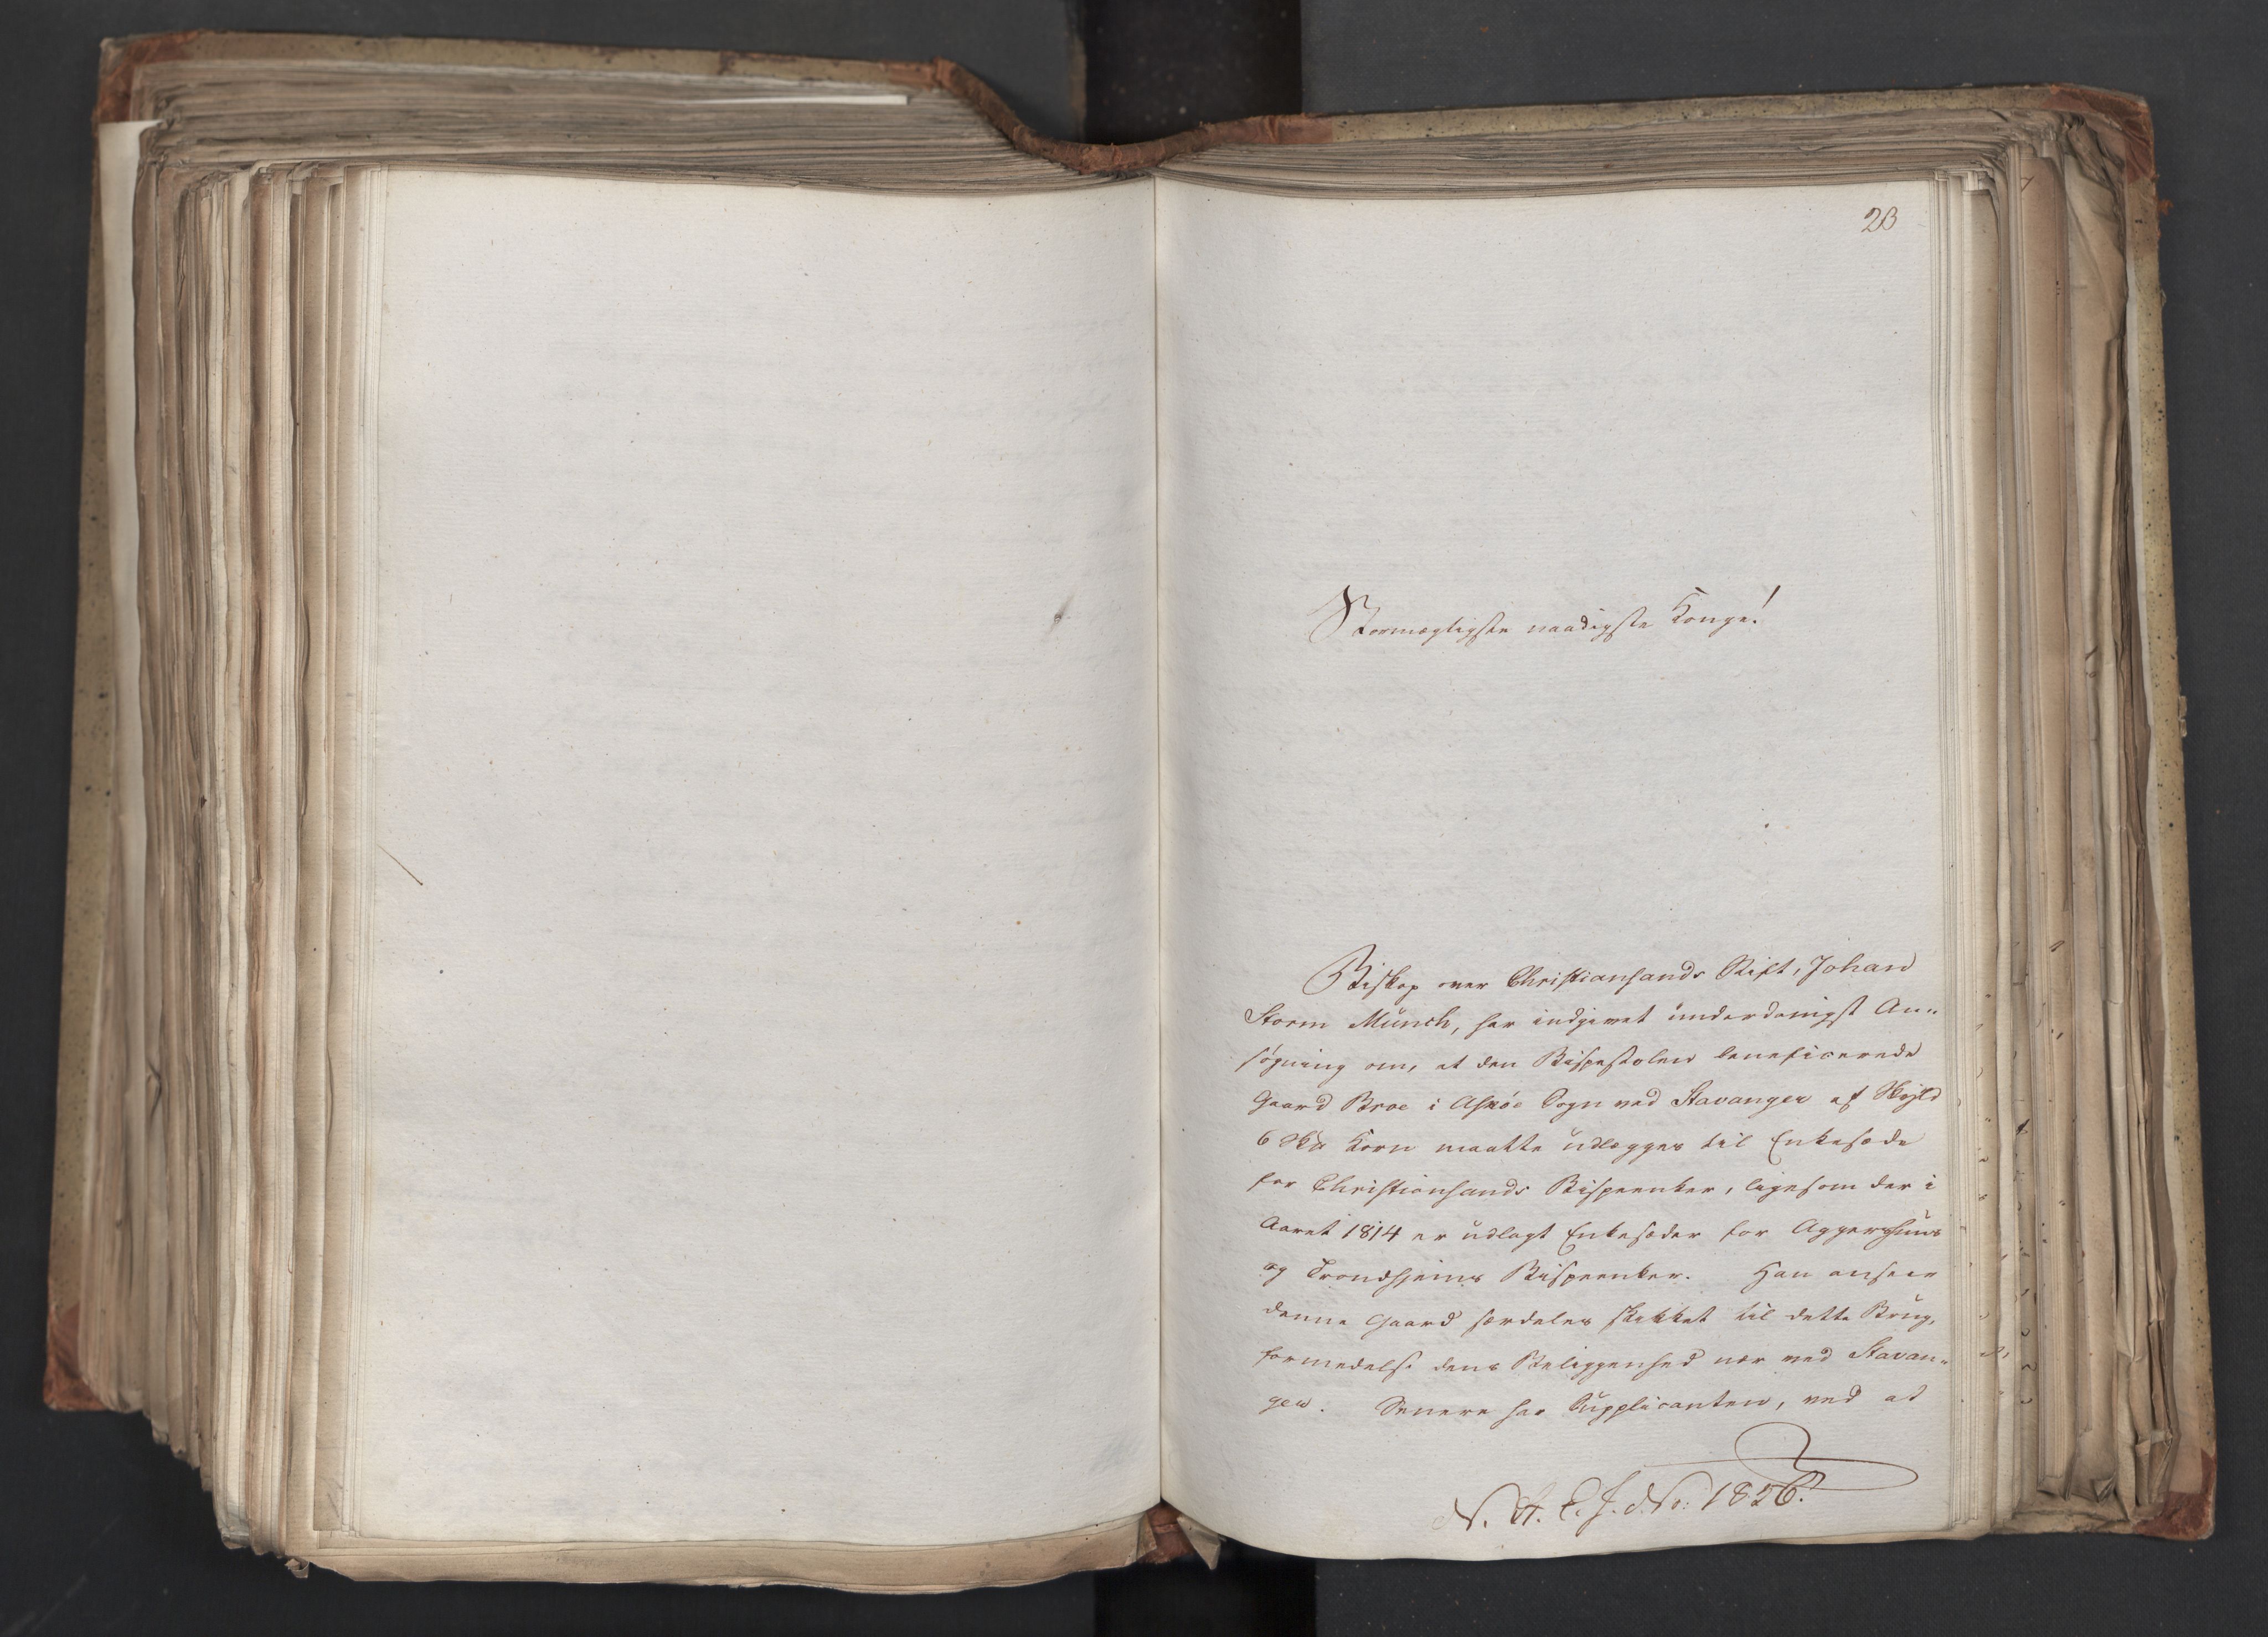 23
Stormægtigste naadigste Konge!
Biskop over Christiansands Stift, Johan
Storm Munch, har indgivet underdanigst An-
søgning om, at den Bispestolen beneficerede
Gaard Broe i Askøe Sogn ved Stavanger af Skyld
6 Korn maatte udlægges til Enkesæde
for Christiansands Bispeenker, ligesom der i
Aaret 1814 er udlagt Enkesæder for Aggershuus
og Trondhjems Bispeenker. Han anseer
denne Gaard særdeles skikket til dette Brug,
formedelst dens Beliggenhed nær ved Stavan-
ger. Senere har Supplicanten, ved at
N. St. C. J. No: 1826.